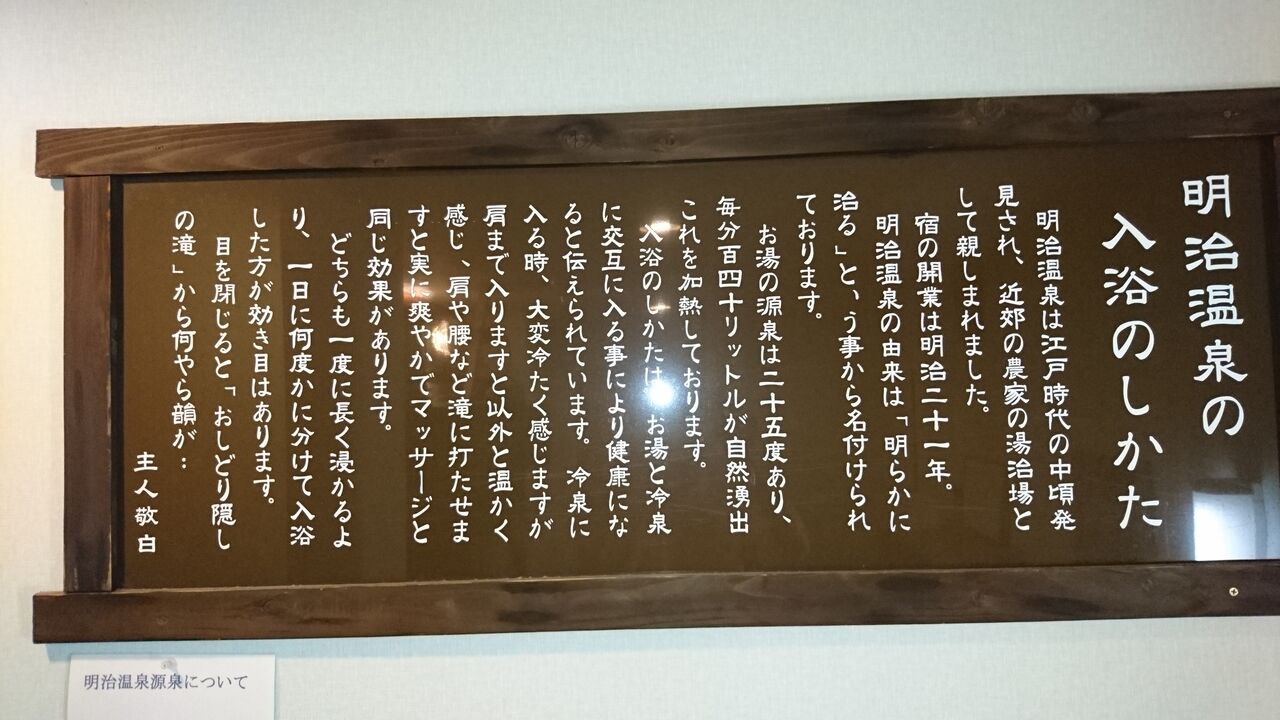 明治温泉の
入浴のしかた
明治温泉は江戸時代の中頃発
見され、近郊の農家の湯治場と
して親しまれました。
宿の開業は明治二十一年。
明治温泉の由来は「明らかに
治る」と、う事から名付けられ
ております。
お湯の源泉は二十五度あり、
毎分百四十リットルが自然湧出
これを加熱しております。
入浴のしかたは、お湯と冷泉
に交互に入る事により健康にな
ると伝えられています。冷泉に
入る時、大変冷たく感じますが
肩まで入りますと以外と温かく
感じ、肩や腰など滝に打たせま
すと実に爽やかでマッサージと
同じ効果があります。
どちらも一度に長く浸かるよ
り、一日に何度かに分けて入浴
した方が効き目はあります。
目を閉じると「おしどり隠し
の滝」から何やら韻が…
主人敬白
明治温泉源泉について